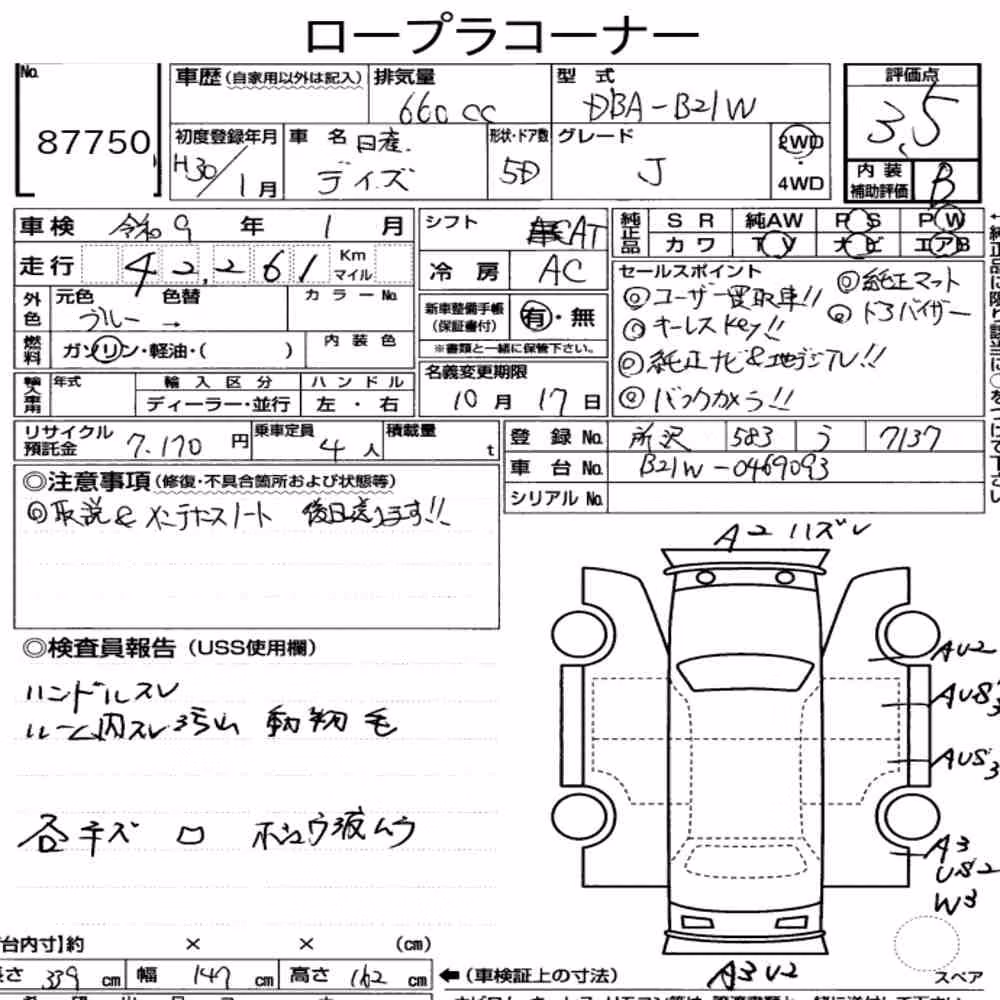 ロープラコーナー
No.
87750
車歴 (自家用以外は記入)
排気量
660cc
型式
DBA-B21W
評価点
3.5
初度登録年月
H30/1月
車名
日産
デイズ
形状・ドア数
5D
グレード
J
2WD
・
4WD
内装
補助評価
B
車検 令和9年 1月
走行 42,261 Km
マイル
シフト
AT
冷房 AC
純正品
SR 純AW PS PW
カワ TV ナビ エアB
外色
元色 色替
ブルー →
カラーNo.
燃料
ガソリン・軽油・( )
内装色
新車整備手帳
(保証書付)
有・無
※書類と一緒に保管下さい。
セールスポイント
◎ユーザー買取車!!
◎キーレスKey!!
◎純正ナビ&地デジTV!!
◎バックカメラ!!
◎純正マット
◎ドアバイザー
輸入車用
年式
輸入区分
ディーラー・並行
ハンドル
左・右
名義変更期限
10月17日
リサイクル
預託金
7.170円
乗車定員
4人
積載量
t
登録No.
所沢 583 う 7137
車台No.
B21W-0469093
シリアルNo.
◎注意事項(修復・不具合箇所および状態等)
◎取説&メンテナンスノート 後日送ります!!
◎検査員報告(USS使用欄)
ハンドルスレ
ルーム内スレ汚れ 動物毛
各キズ ロ ホシュウ液ムラ
A2ハズレ
AU2
AUS3
AUS3
A3
US2
W3
A3U2
スペア
台内寸】約 × × (cm)
長さ 339cm 幅 147cm 高さ 162cm
←(車検証上の寸法)